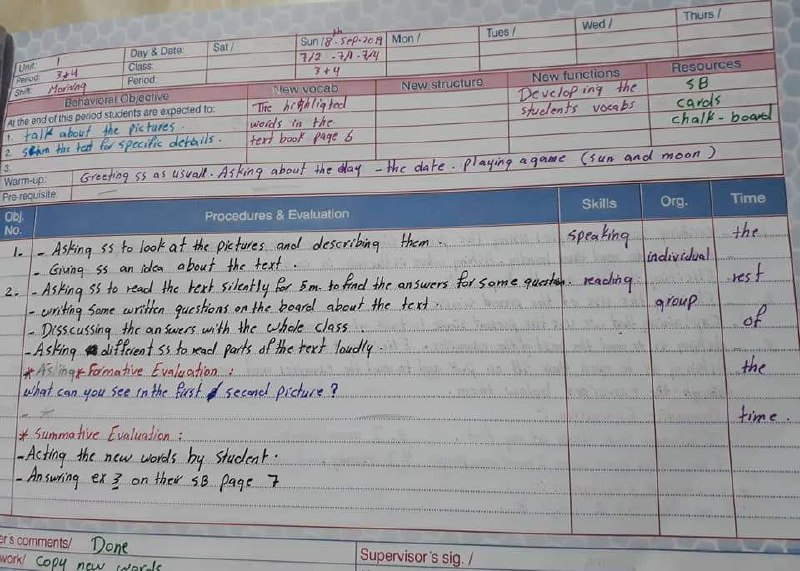 Unit: 1 Day & Date: Sat / Sun / 8th - Sep. 2019 Mon / Tues / Wed / Thurs /
Period: 3+4 Class: 7/2 - 7/1 - 7/4
Shift: Morning Period 3 + 4
Behavioral Objective New vocab New structure New functions Resources
At the end of this period students are expected to: The highligted Developing the SB
1. talk about the pictures. words in the students vocabs cards
2. scan the text for specific details. text book page 6 chalk-board
3.
Warm-up: Greeting ss as usuall. Asking about the day - the date. playing a game (sun and moon)
Pre-requisite:
Obj. No. Procedures & Evaluation Skills Org. Time
1. - Asking ss to look at the pictures and describing them. speaking the
- Giving ss an idea about the text. individual
2. - Asking ss to read the text silently for 5m to find the answers for some question. reading rest
- writing some written questions on the board about the text. group
- Disscussing the answers with the whole class of
- Asking different ss to read parts of the text loudly.
* Asking * Formative Evaluation : the
what can you see in the first / second picture ?
- time.
* Summative Evaluation :
- Acting the new words by student.
- Ansuring ex 3 on their SB page 7
er's comments/ Done Supervisor's sig. /
work/ Copy new words